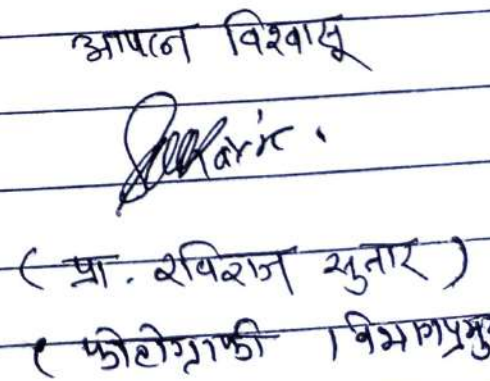 आपला विश्वासू
( प्रा. रविराज सुतार )
( फोटोग्राफी विभागप्रमु